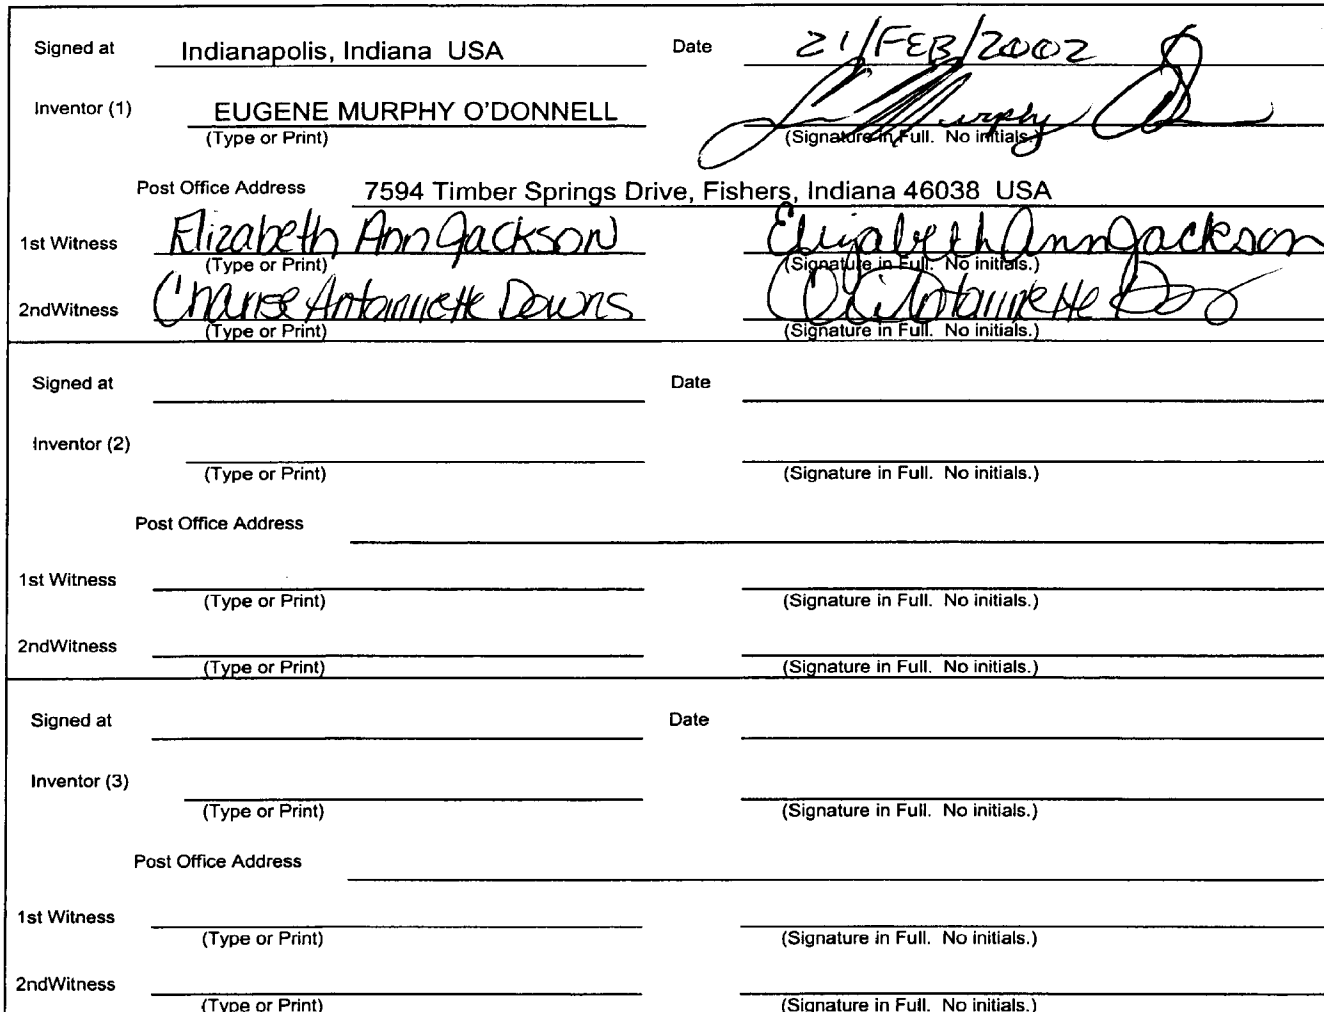 Signed at Indianapolis, Indiana USA Date 21/FEB/2002
Inventor (1) EUGENE MURPHY O'DONNELL Murphy
(Type or Print) (Signature in Full. No initials.)
Post Office Address 7594 Timber Springs Drive, Fishers, Indiana 46038 USA
1st Witness Elizabeth Ann Jackson Elizabeth Ann Jackson
(Type or Print) (Signature in Full. No initials.)
2ndWitness Charise Antoinnette Downs Antoinnette
(Type or Print) (Signature in Full. No initials.)
Signed at Date
Inventor (2)
(Type or Print) (Signature in Full. No initials.)
Post Office Address
1st Witness
(Type or Print) (Signature in Full. No initials.)
2ndWitness
(Type or Print) (Signature in Full. No initials.)
Signed at Date
Inventor (3)
(Type or Print) (Signature in Full. No initials.)
Post Office Address
1st Witness
(Type or Print) (Signature in Full. No initials.)
2ndWitness
(Type or Print) (Signature in Full. No initials.)